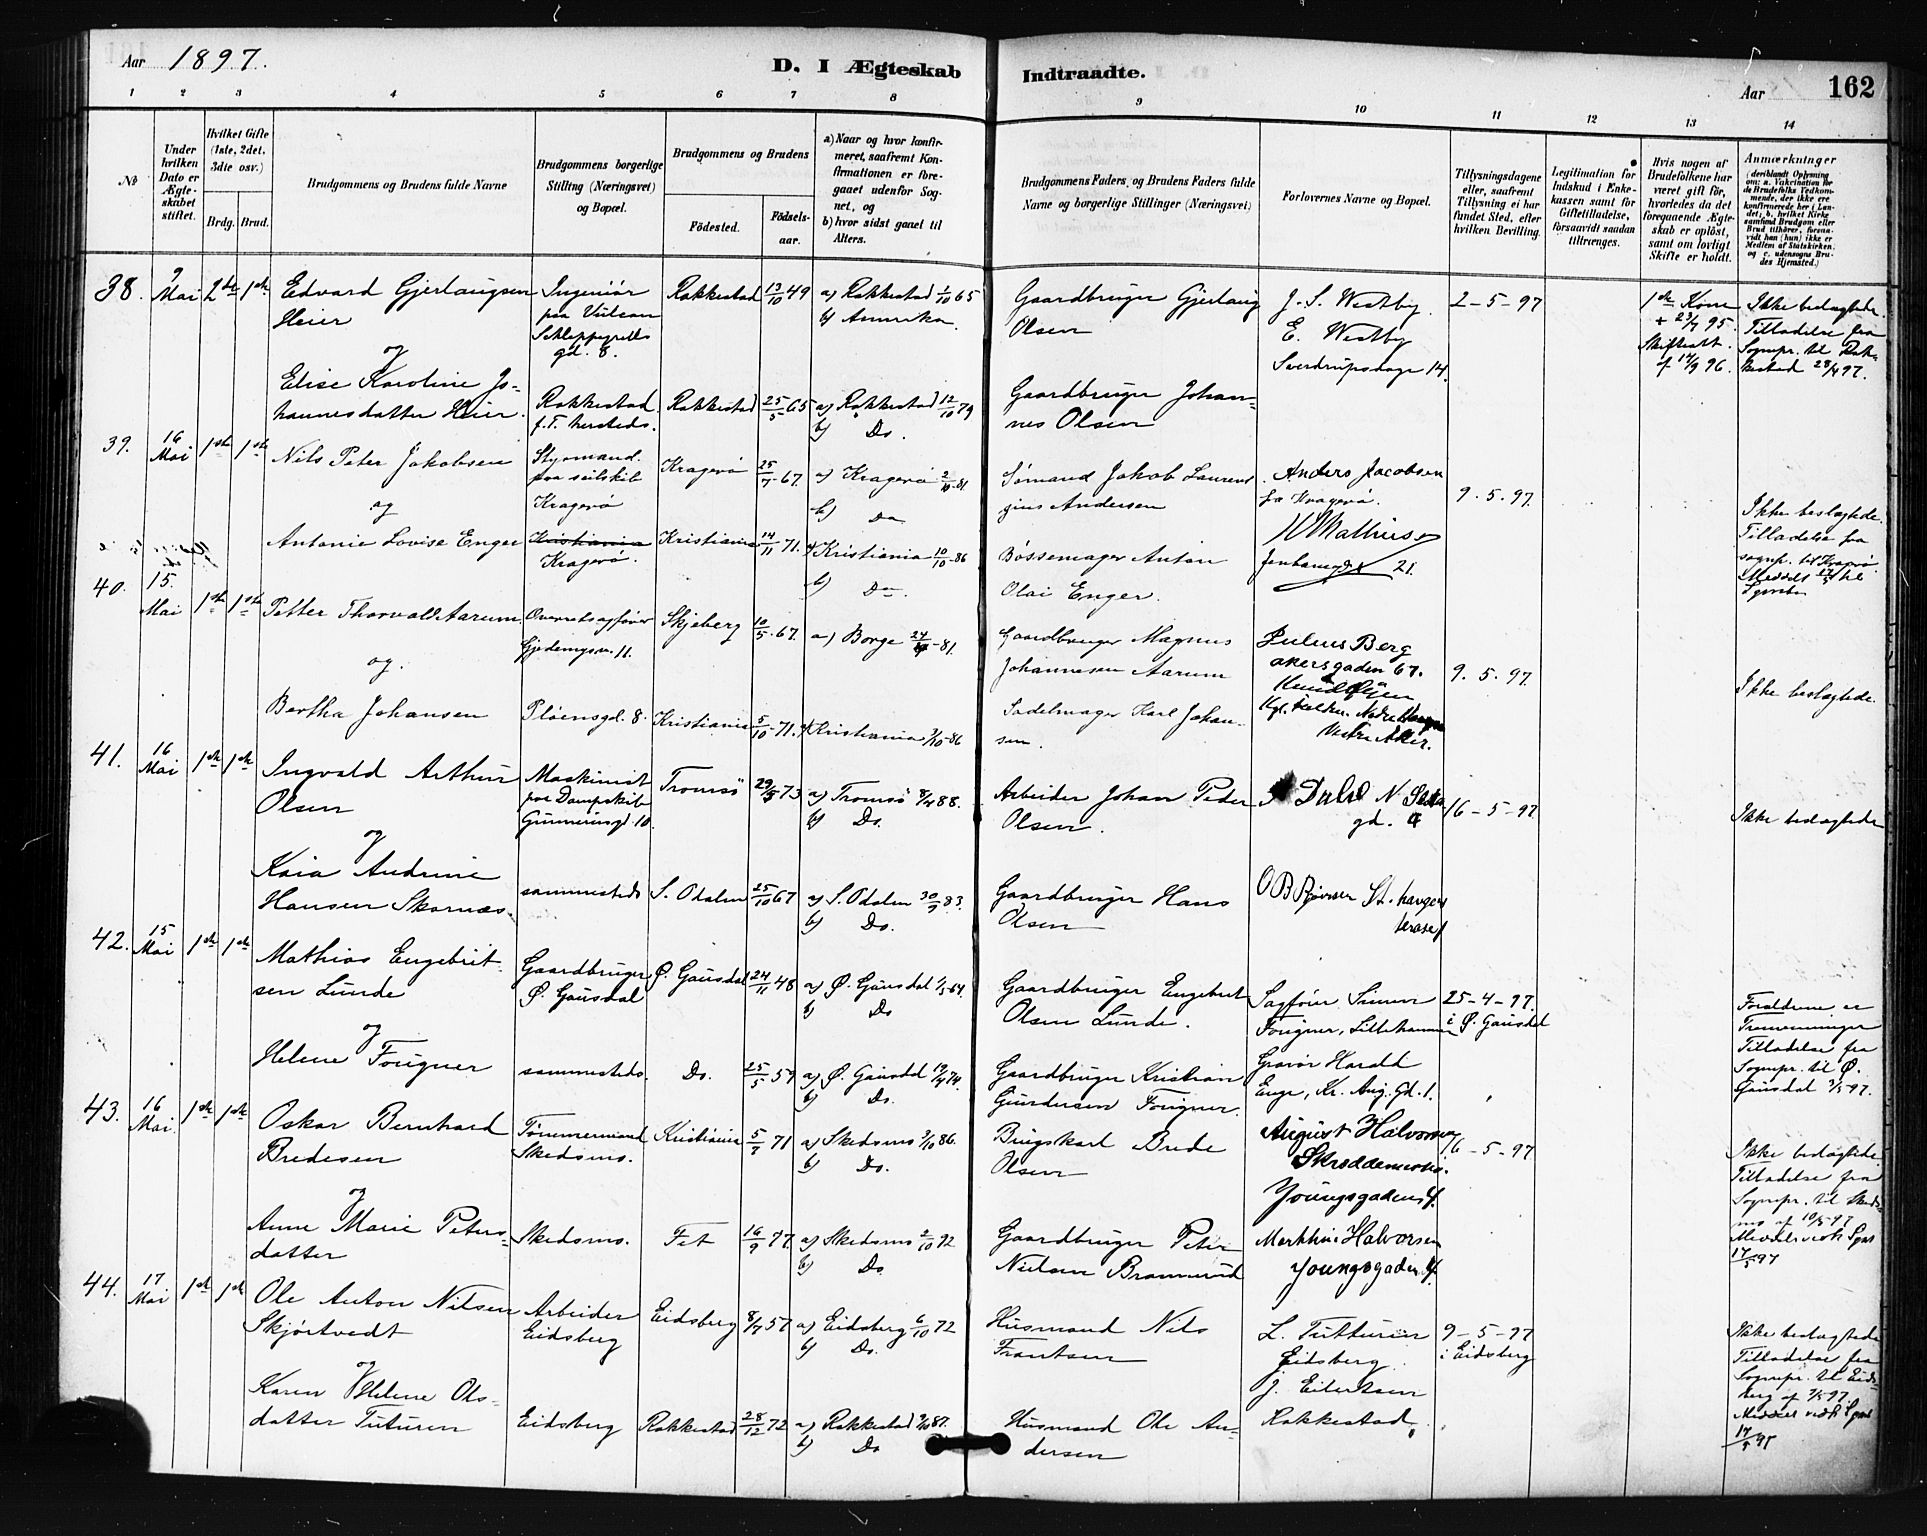 Aar 1897.
D. I Ægteskab Indtraadte.
Aar 162
1 2 3 4 5 6 7 8 9 10 11 12 13 14
No
Under hvilken Dato er Ægteskabet stiftet.
Hvilket Gifte (1ste, 2det, 3die osv.)
Brdg. Brud.
Brudgommens og Brudens fulde Navne
Brudgommens borgerlige Stilling (Næringsvei) og Bopæl.
Brudgommens og Brudens
Födested. Födselsaar.
a) Naar og hvor konfirmeret, saafremt Konfirmationen er foregaaet udenfor Sognet, og
b) hvor sidst gaaet til Alters.
Brudgommens Faders og Brudens Faders fulde Navne og borgerlige Stillinger (Næringsvei)
Forlovernes Navne og Bopæl.
Tillysningsdagene eller, saafremt Tillysning ei har fundet Sted, efter hvilken Bevilling.
Legitimation for Indskud i Enkekassen samt for Giftetilladelse, forsaavidt saadan tiltrænges.
Hvis nogen af Brudefolkene har været gift för, hvorledes da det foregaaende Ægteskab er oplöst, samt om lovligt Skifte er holdt.
Anmærkninger
38. 9 Mai 2den 1ste Edvard Gjerlaugsen Heier
Ingeniör paa Vulcan Schleppegrells gd. 8.
Rakkestad 13/10 49 a) Rakkestad 1/10 65 b) Amerika.
Gaardbruger Gjerlaug Olsen
J. S. Westby E. Westby Sverdrupsdage 14.
2-5-97
1ste Kone + 23/7 95. Skifteatt. af 14/9 96.
Ikke beslægtede Tilladelse fra Sognepr. til Rakkestad 28/4 97.
og
Elise Karoline Johannesdatter Heier.
Rakkestad f. T. hersteds.
Rakkestad 25/5 65 a) Rakkestad 12/10 79 b) Do.
Gaardbruger Johannes Olsen
39. 16 Mai 1ste 1ste Nils Peter Jakobsen
Styrmand paa seilskib Kragerø
Kragerø 25/7-67. a) Kragerø 2/10-81. b) Do
Sømand Jakob Laurentzius Andersen
Anders Jacobsen fra Kragerø.
9.5.97.
Ikke beslægtede. Tilladelse fra sognepr. til Kragerø.
og
Antonie Lovise Enger
Kristiania Kragerø.
Kristiania 14/11 71. a) Kristiania 10/10-86 b) Do
Bøssemager Anton Olai Enger.
Jernbanegd 21.
40. 15. Mai 1ste 1ste Petter Thorvald Aarum
Overretssagfører Gjedemyrsv. 11.
Skjeberg 10/5-67. a) Borge 24/4-81.
Gaardbruger Magnus Johannesen Aarum
Julius Berg Akersgaden 67.
9.5.97.
Ikke beslægtede.
og.
Bertha Johansen
Pløensgd. 8. Kristiania 5/10-71. a) Kristiania 3/10-86
Sadelmager Karl Johansen.
Vestre Aker.
41. 16 Mai 1ste 1ste Ingvald Arthur Olsen
Maskinist paa Dampskib Gunnerusgd. 10.
Tromsö 29/3 73 a) Tromsö 8/4 88. b) Do.
Arbeider Johan Peder Olsen.
Dahl
16-5-97
Ikke beslægtede
og
Kaia Andrine Hansen Skarnæs.
sammesteds S. Odalen 25/10 67 a) S. Odalen 30/9 83. b) Do.
Gaardbruger Hans Olsen
St. haugen terase
42. 15 Mai 1ste 1ste Mathias Engebritsen Lunde
Gaardbruger Ø. Gausdal
Ø. Gausdal 24/11 48 a) Ø. Gausdal 1/5-64. b) Do
Gaardbruger Engebret Olsen Lunde.
Sagfører Simen Fougner, Lillehammer
25-4-97. i Ø. Gausdal
Forældrene er Tremenninger Tilladelse fra Sognepr. til Ø. Gausdal 3/5-97.
og
Helene Fougner
sammesteds. Do. 25/5 59 a) Ø. Gausdal 19/4 74. b) Do.
Gaardbruger Kristian Gundersen Fougner.
Gravör Harald Enge, Kr. Aug. Gd. 1.
43. 16 Mai. 1ste 1ste Oskar Bernhard Bredesen
Tömmermand Skedsmo.
Kristiania 5/7 71 a) Skedsmo 3/10 86. b) Do.
Brugskarl Brede Olsen
August Halvorsen Skreddermester. Youngsgaden 4.
16-5-97.
Ikke beslægtede Tilladelse fra Sognepr. til Skedsmo af 10/5-97 17/5 97
og
Anne Marie Petersdatter
Skedsmo. Fet 16/9 77. a) Skedsmo 2/10 92 b) Do
Gaardbruger Peter Nielsen Brannerud
Halvorsen Youngsgaden 4.
44. 17 Mai 1ste 1ste Ole Anton Nilsen Skjörtvedt
Arbeider Eidsberg
Eidsberg 8/7 57 a) Eidsberg 6/10 72 b) Do.
Husmand Nils Frantsen
L. Tutturen Eidsberg.
9-5-97 i Eidsberg
Ikke beslægtede Tilladelse fra Sognepr. til Eidsberg af 7/5 97
og
Karen Helene Olsdatter Tuturen
Eidsberg Rakkestad 28/12 72 a) Rakkestad 2/10 87. b) Do
Husmand Ole Andersen
J. Eilertsen Rakkestad.